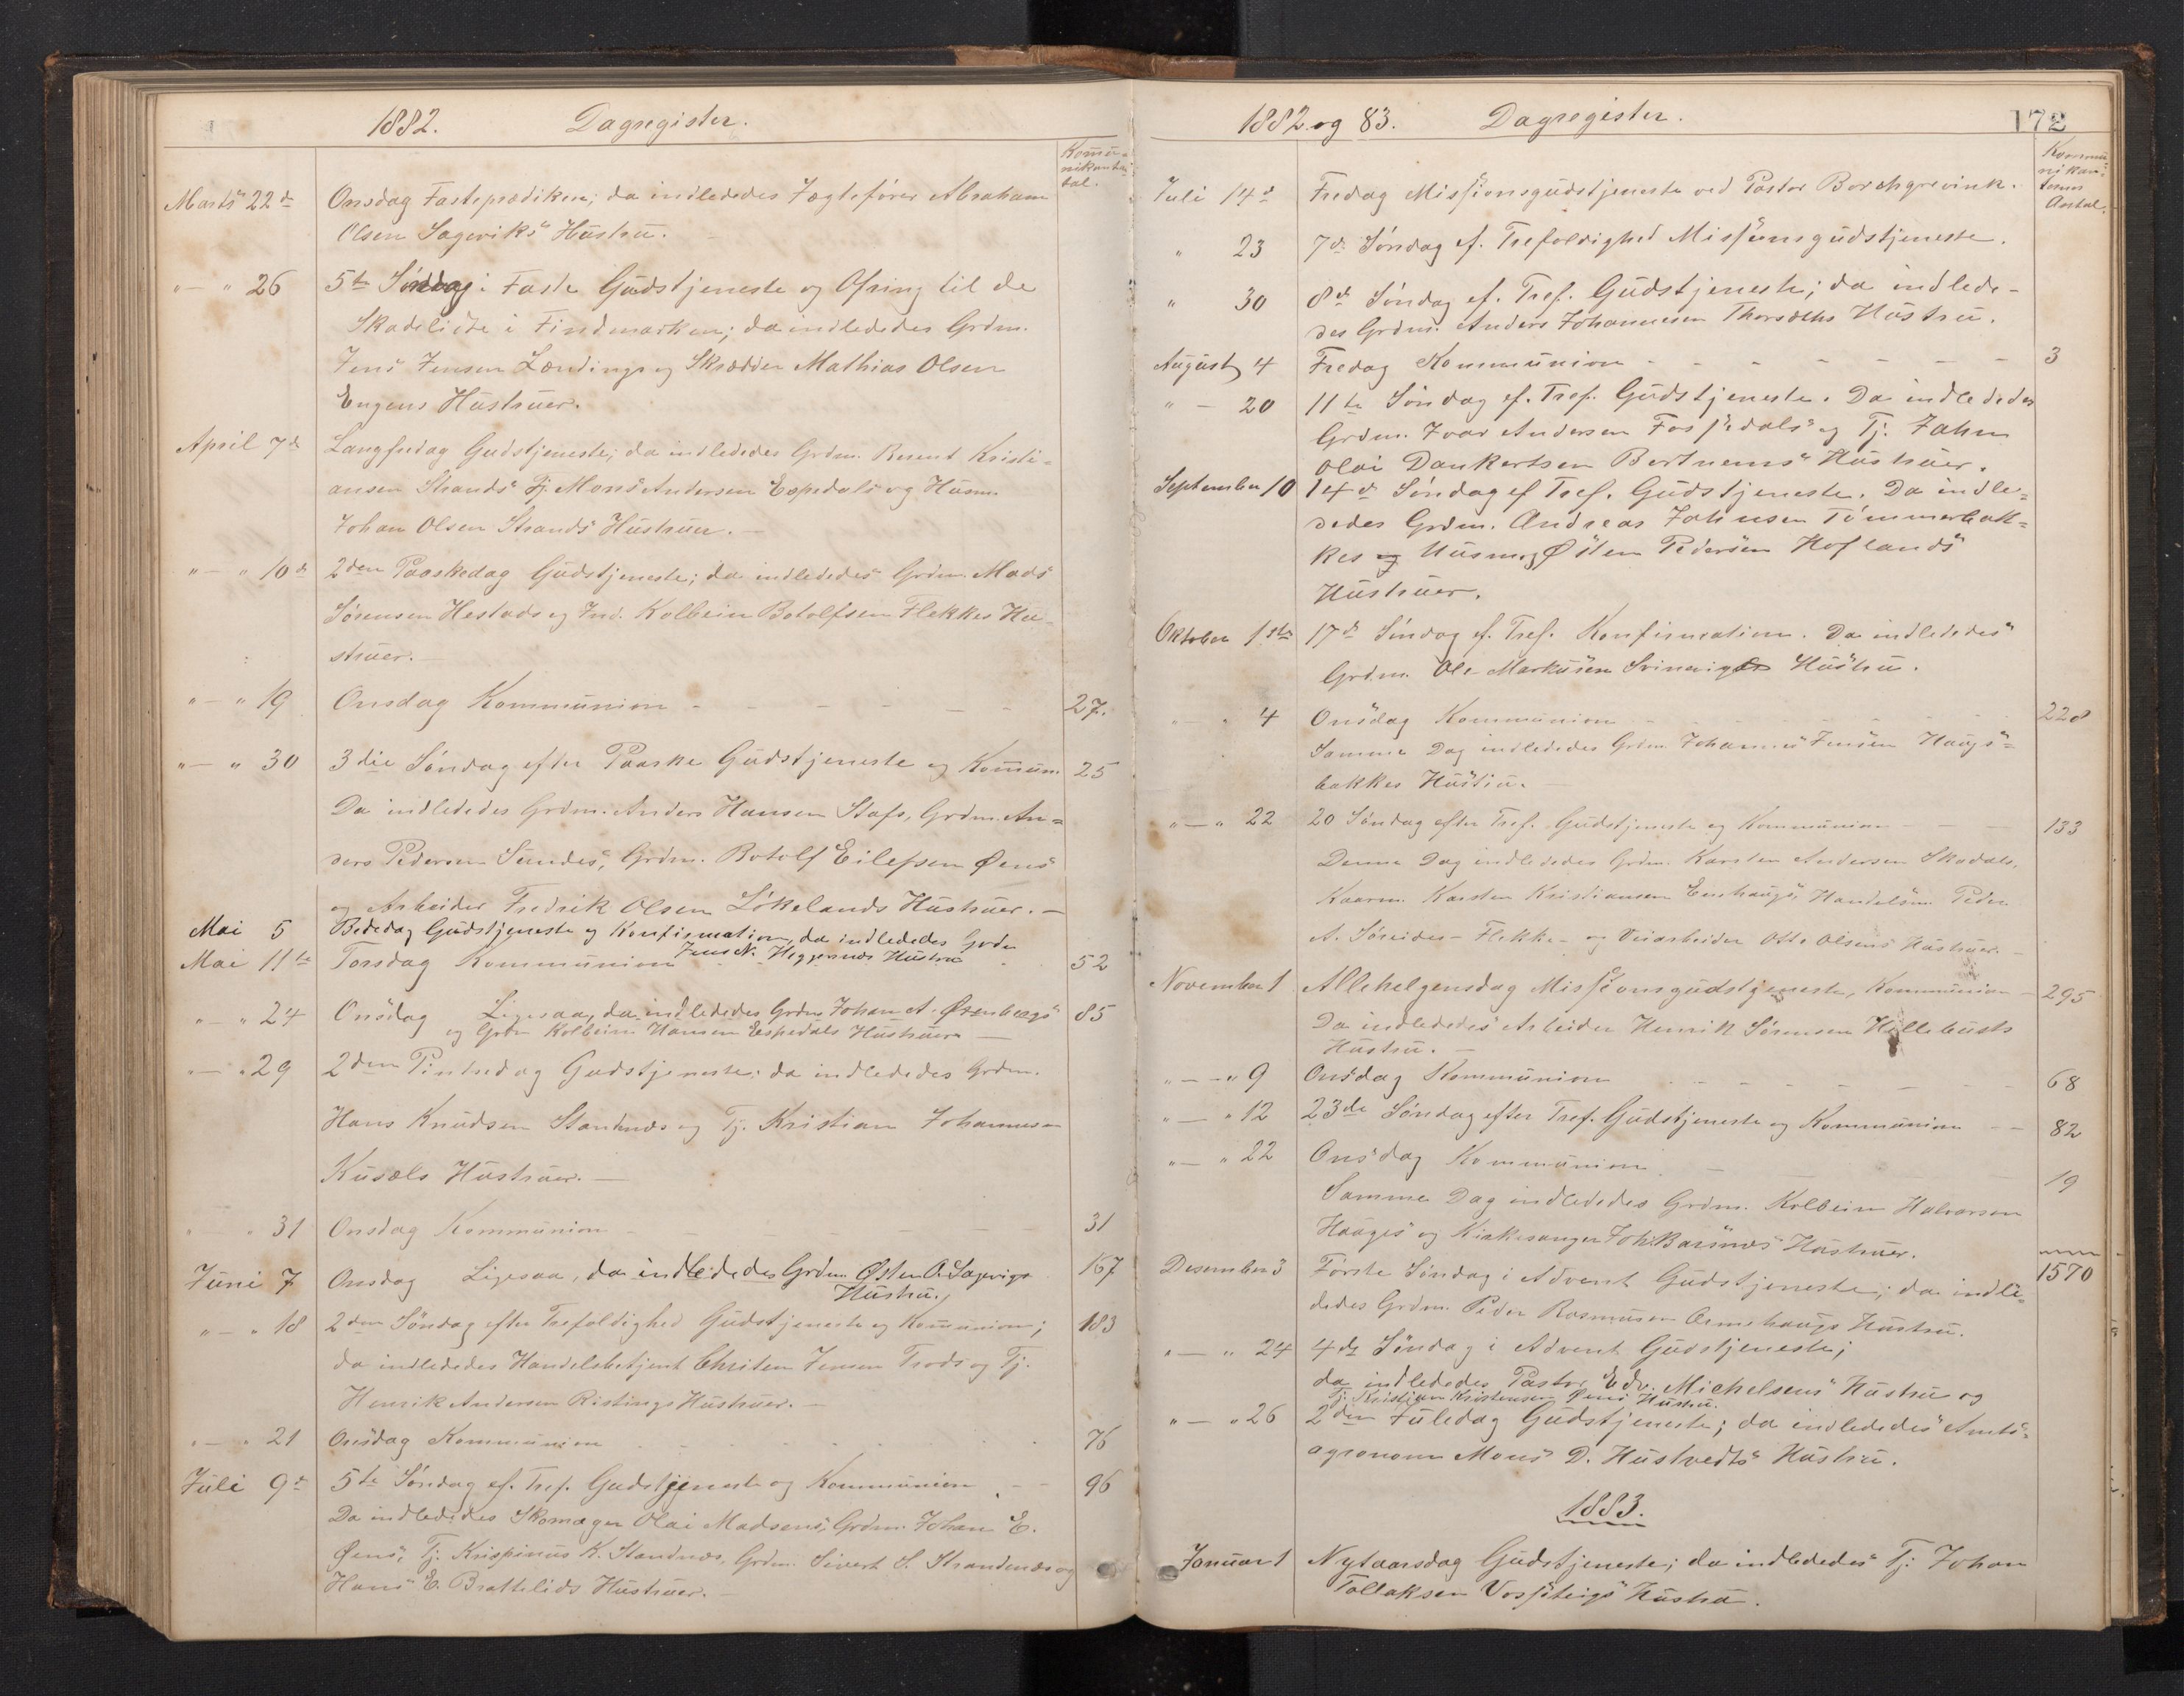 1882. Dagregister.
Kommunikanter tal.
Marts 22de Onsdag Fasteprædiken; da indlededes Jægtefører Abraham
Olsen Sageviks Hustru.
" — " 26 5te Søndag i Faste Gudstjeneste og Ofring til de
Skadelidte i Findmarken; da indlededes Grdm.
Jens Jensen Lændings og Skrædder Mathias Olsen
Engens Hustruer.
April 7de Langfredag Gudstjeneste; da indlededes Grdm. Kristi=
ansen Strands Tj. Mons Andersen Espedals og Husm.
Johan Olsen Strands Hustruer. —
" — " 10de 2den Paaskedag Gudstjeneste; da indlededes Grdm. Mads
Sørensen Hestads og Ind. Kolbein Botolfsen Flekkes Hu=
struer. —
" — " 19 Onsdag Kommunion - - - - - 27.
" — " 30 3die Søndag efter Paaske Gudstjeneste og Kommun. 25
Da indlededes Grdm. Anders Hansen Stafs, Grdm. An=
ders Pedersen Sundes, Grdm. Botolf Eilefsen Øens
og Arbeider Fredrik Olsen Løkelands Hustruer. —
Mai 5 Bededag Gudstjeneste og Konfirmation, da indlededes Grdm
Jens N. Heggenes Hustru
Mai 11te Torsdag Kommunion 52
" — " 24 Onsdag Ligesaa, da indlededes Grdm Johan A. Ørenbergs 85
og Grdm Kolbein Hansen Espedals Hustruer —
" — " 29 2den Pintsedag Gudstjeneste; da indlededes Grdm.
Hans Knudsen Standnæs og Tj. Kristian Johannesen
Kusæls Hustruer. —
" — " 31 Onsdag Kommunion - - - 31
Juni 7 Onsdag Ligesaa, da indlededes Grdm Østen O. Sagevigs 167
Hustru.
" — " 18 2den Søndag efter Trefoldighed Gudstjeneste og Kommunion; 183
da indlededes Handelsbetjent Christen Jensen Trods og Tj.
Henrik Andersen Ristings Hustruer. —
" — " 21 Onsdag Kommunion 76
Juli 9de 5te Søndag ef. Tref. Gudstjeneste og Kommunion - - 96
Da indlededes Skomager Olai Madsens, Grdm. Johan E.
Øens, Tj. Krispinus K. Standnæs, Grdm. Sivert S. Strandenæs og
Hans E. Brattelids Hustruer. —
1882 og 83. Dagregister.
172
Kommunikanternes Antal.
Juli 14de Fredag Missionsgudstjeneste ved Pastor Borchgrevink.
" 23 7de Søndag ef. Trefoldighed Missionsgudstjeneste.
" 30 8de Søndag ef. Tref. Gudstjeneste; da indlede-
des Grdm. Anders Johannesen Thorsæths Hustru.
August 4 Fredag Kommunion - - - - - - - 3
" — 20 11te Søndag ef. Tref. Gudstjeneste. Da indlededes
Grdm. Ivar Andersen Fossedals og Tj. Johan
Olai Dankertsen Bertnems Hustruer.
September 10 14de Søndag ef Tref. Gudstjeneste. Da indle=
dedes Grdm. Andreas Johnsen Tømmerbak=
kes og Husmg Østen Pedersen Hoflands
Hustruer.
Oktober 1ste 17de Søndag ef. Tref. Konfirmation. Da indlededes
Grdm. Ole Markusen Svinevigs Hustru.
" — " 4 Onsdag Kommunion 228
Samme Dag indlededes Grdm. Johannes Jensen Haugs=
bakkes Hustru.
" — " 22 20 Søndag efter Tref. Gudstjeneste og Kommunion - - - 133
Denne Dag indlededes Grdm. Karsten Andersen Skadals,
Kaarm. Karsten Kristiansen Eenhaugs, Handelsm. Peder
A. Søreides - Flekke - og Veiarbeider Otto Olsens Hustruer. —
November 1 Allehelgensdag Missionsgudstjeneste, Kommunion - 295
Da indlededes Arbeider Henrik Sørensen Hellebusts
Hustru. —
" — " 9 Onsdag Kommunion - - - - - 68
" — " 12 23de Søndag efter Tref. Gudstjeneste og Kommunion - - 82
" — " 22 Onsdag Kommunion - - 19
Samme Dag indlededes Grdm. Kolbein Halvorsen
Hauges og Kirkesanger Joh. Barsnæs Hustruer.
Desember 3 Første Søndag i Advent Gudstjeneste; da indle= 1570
dedes Grdm. Peder Rasmusen Ormehaugs Hustru.
" — " 24 4de Søndag i Advent Gudstjeneste;
da indlededes Pastor Edv. Michelsens Hustru og
Tj. Kristian Kristensen Øens Hustru.
" — " 26 2den Juledag Gudstjeneste; da indlededes Amts=
agronom Mons D. Hustvedts Hustru.
1883.
Januar 1 Nytaarsdag Gudstjeneste; da indlededes Tj. Johan
Tollaksen Vossteigs Hustru.